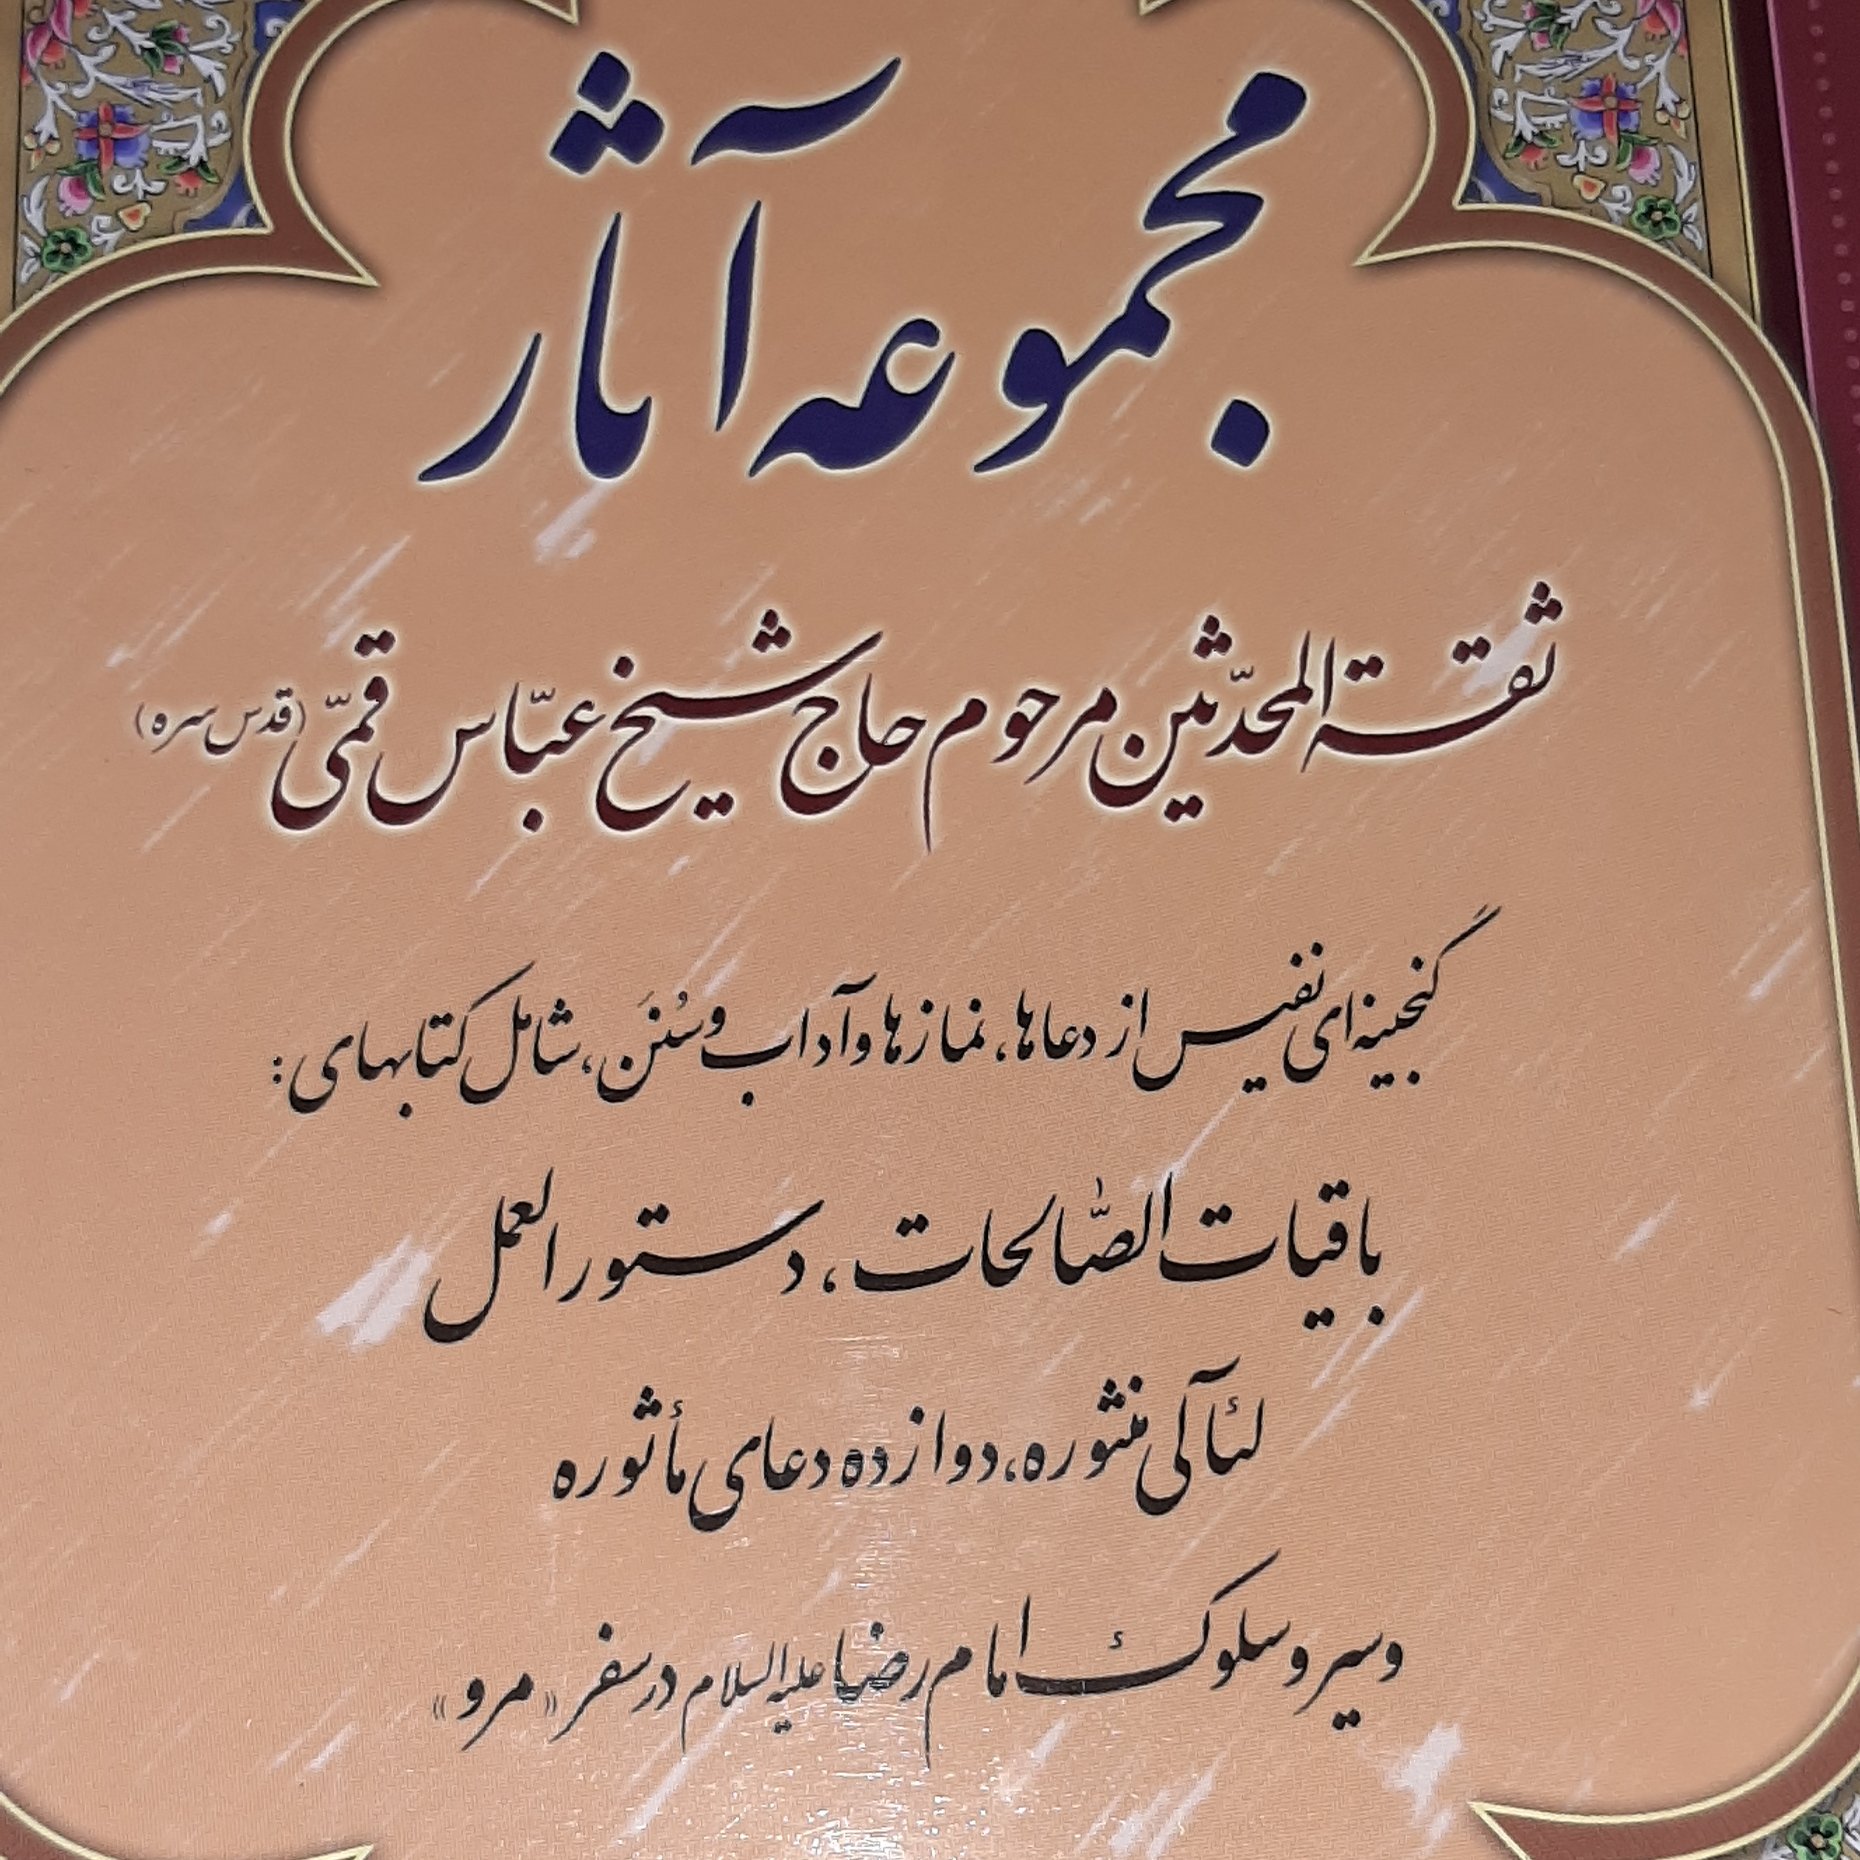 مجموعه آثار
ثقة المحدّثین مرحوم حاج شیخ عبّاس قمّی (قدس سره)
گنجینه‌ای نفیس از دعاها، نمازها و آداب و سُنَن، شامل کتابهای:
باقیات الصّالحات، دستور العمل
لئآلی منثوره، دوازده دعای مأثوره
و سیر و سلوک امام رضا علیه السلام در سفر «مرو»